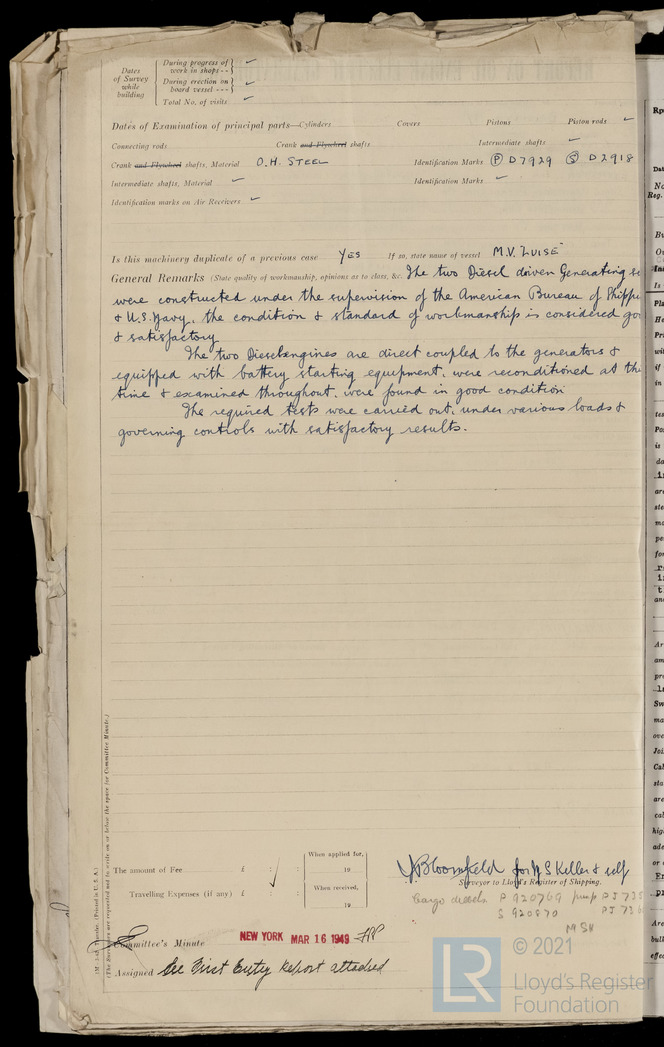 Dates of Survey while building
During progress of work in shops - -
During erection on board vessel - - -
Total No. of visits
Dates of Examination of principal parts—Cylinders Covers Pistons Piston rods
Connecting rods Crank and Flywheel shafts Intermediate shafts
Crank and Flywheel shafts, Material O.H. STEEL Identification Marks (P) D7929 (S) D2918
Intermediate shafts, Material Identification Marks
Identification marks on Air Receivers
Is this machinery duplicate of a previous case YES If so, state name of vessel M.V. LUISE
General Remarks (State quality of workmanship, opinions as to class, &c. The two Diesel driven Generating se
were constructed under the supervision of the American Bureau of Shippi
& U.S. Navy, the condition & standard of workmanship is considered go
& satisfactory
The two Diesel engines are direct coupled to the generators &
equipped with battery starting equipment, were reconditioned at the
time & examined throughout, were found in good condition
The required tests were carried out, under various loads &
governing controls with satisfactory results.
(The Surveyors are requested not to write on or below the space for Committee Minute.)
(Printed in U.S.A.)
The amount of Fee £ : :
When applied for,
19
Travelling Expenses (if any) £ : :
When received,
19
J Bloomfield for W S Keller & self
Surveyor to Lloyd's Register of Shipping.
Cargo diesels P 920769 pump PJ 735
S 920870 PJ 736
Committee's Minute NEW YORK MAR 16 1949
Assigned See First Entry Report attached
LR
© 2021
Lloyd's Register
Foundation